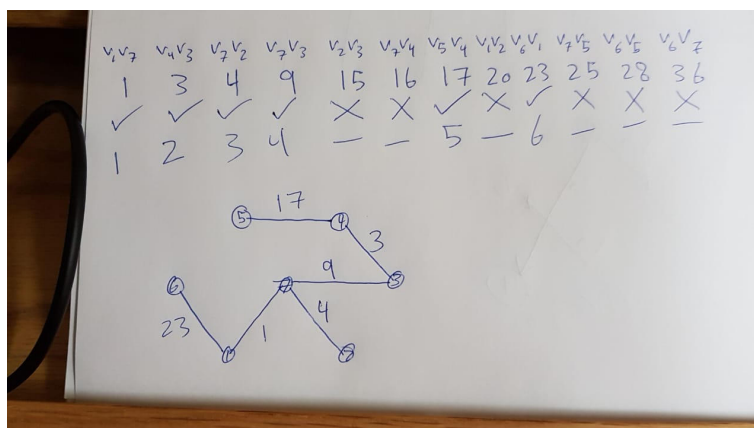 v₁v₇ v₄v₃ v₇v₂ v₇v₃ v₂v₃ v₇v₄ v₅v₄ v₁v₂ v₆v₁ v₇v₅ v₆v₅ v₆v₇
1 3 4 9 15 16 17 20 23 25 28 36
✓ ✓ ✓ ✓ X X ✓ X ✓ X X X
1 2 3 4 — — 5 — 6 — — —
17
5 4
3
9
6 7 3
23 1 4
1 2